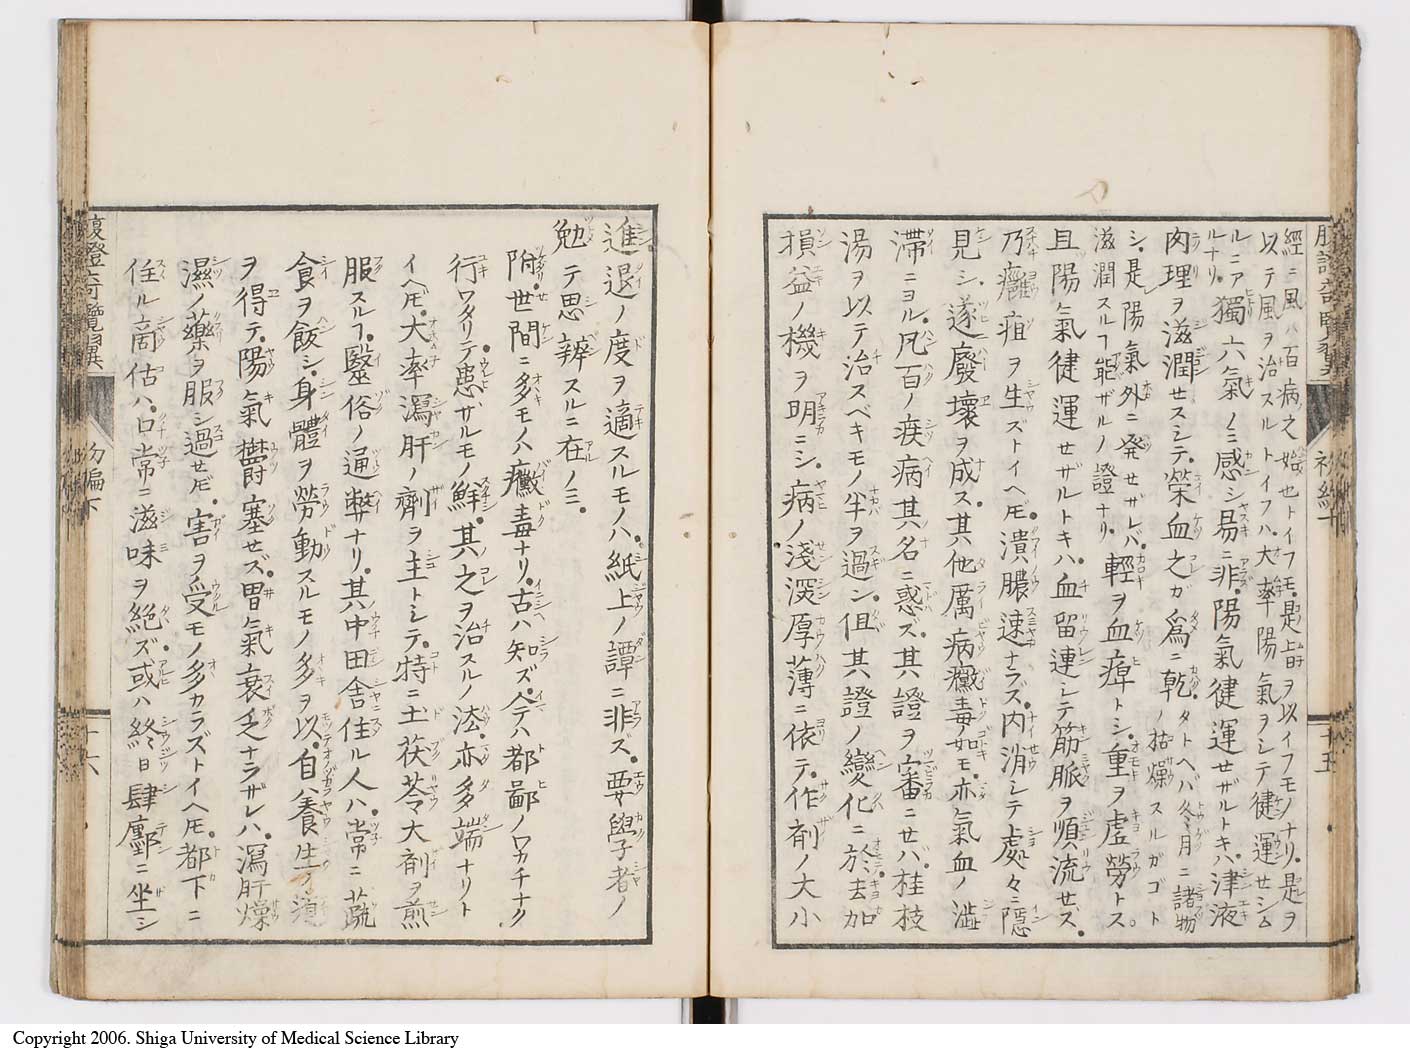 經ニ風ハ百病之始也トイフモ是旨ヲ以イフモノナリ是ヲ
以テ風ヲ治スルトイフハ大率陽氣ヲシテ健運セシム
ルニアルナリ獨六氣ノミ感シ易ニ非陽氣健運セザルトキハ津液
肉理ヲ滋潤セスシテ榮血之ガ爲ニ乾タトヘバ冬月ニ諸物ノ枯燥スルガゴト
シ是陽氣外ニ発セザレバ滋潤スルヿ能ザルノ證ナリ輕ヲ血痺トシ重ヲ虚勞トス
且陽氣健運セザルトキハ血留連シテ筋脈ヲ順流セズ
乃癰疽ヲ生ズトイヘ𪜈潰膿速ナラズ内消シテ處々ニ隱
見シ遂廢壞ヲ成ス其他厲病黴毒ノ如モ亦氣血ノ澁
滞ニヨル凡百ノ疾病其名ニ惑ズ其證ヲ審ニセバ桂枝
湯ヲ以テ治スベキモノ半ヲ過ン但其證ノ變化ニ於去加
損益ノ機ヲ明ニシ病ノ淺深厚薄ニ依テ作剤ノ大小
初編下
十五
進退ノ度ヲ適スルモノハ紙上ノ譚ニ非ズ要學者ノ
勉テ思辨スルニ在ノミ
附世間ニ多モノハ黴毒ナリ古ハ知ズ今ハ都鄙ノワカチナク
行ワタリテ患ザルモノ鮮其之ヲ治スルノ法亦多端ナリト
イヘ𪜈大率瀉肝ノ劑ヲ主トシテ特ニ土茯苓大剤ヲ煎
服スルヿ醫俗ノ通弊ナリ其中田舎住ル人ハ常ニ蔬
食ヲ飯シ身體ヲ勞動スルモノ多ヲ以自ハ養生ヲ須
ヲ得テ陽氣欝塞セズ胃氣衰乏ナラザレハ瀉肝燥
濕ノ藥ヲ服シ過セ𪜈害ヲ受モノ多カラズトイヘ𪜈都下ニ
住ル商估ハ口常ニ滋味ヲ絶ズ或ハ終日肆鄽ニ坐シ
腹證奇覽翼
初編下
十六
Copyright 2006. Shiga University of Medical Science Library